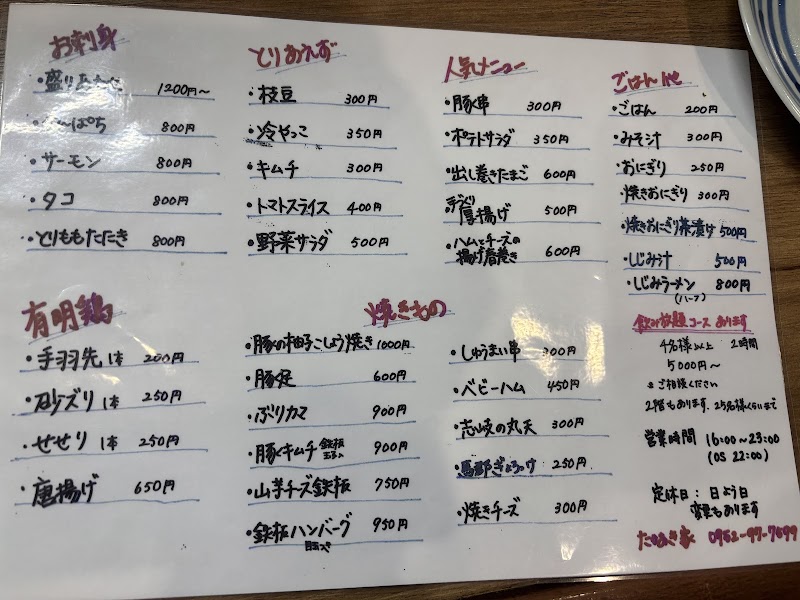 お刺身
・盛りあわせ 1200円〜
800円
・サーモン 800円
・タコ 800円
・とりももたたき 800円
とりあえず
・枝豆 300円
・冷やっこ 350円
・キムチ 300円
・トマトスライス 400円
・野菜サラダ 500円
人気メニュー
・豚く串 300円
・ポテトサラダ 350円
・出し巻きたまご 600円
・手づくり厚揚げ 500円
・ハムとチーズの揚げ春巻き 600円
ごはん他
・ごはん 200円
・みそ汁 300円
・おにぎり 250円
・焼きおにぎり 300円
・焼きおにぎり茶漬け 500円
・しじみ汁 500円
・しじみラーメン 800円
(ハーフ)
有明鶏
・手羽先 1本 200円
・砂ズリ 1本 250円
・せせり 1本 250円
・唐揚げ 650円
焼きもの
・豚の柚子こしょう焼き 1000円
・豚足 600円
・ぶりカマ 900円
・豚くキムチ 鉄板 900円
・山芋チーズ鉄板 750円
・鉄板ハンバーグ 950円
・しゅうまい串 300円
・ベビーハム 450円
・志岐の丸天 300円
・馬郡ぎょろっけ 250円
・焼きチーズ 300円
飲み放題コースあります
4名様以上 2時間
5000円〜
※ご相談ください
2階もあります。25名様くらいまで
営業時間 16:00~23:00
(OS 22:00)
定休日：日よう日
変更もあります
家 0952-97-7699